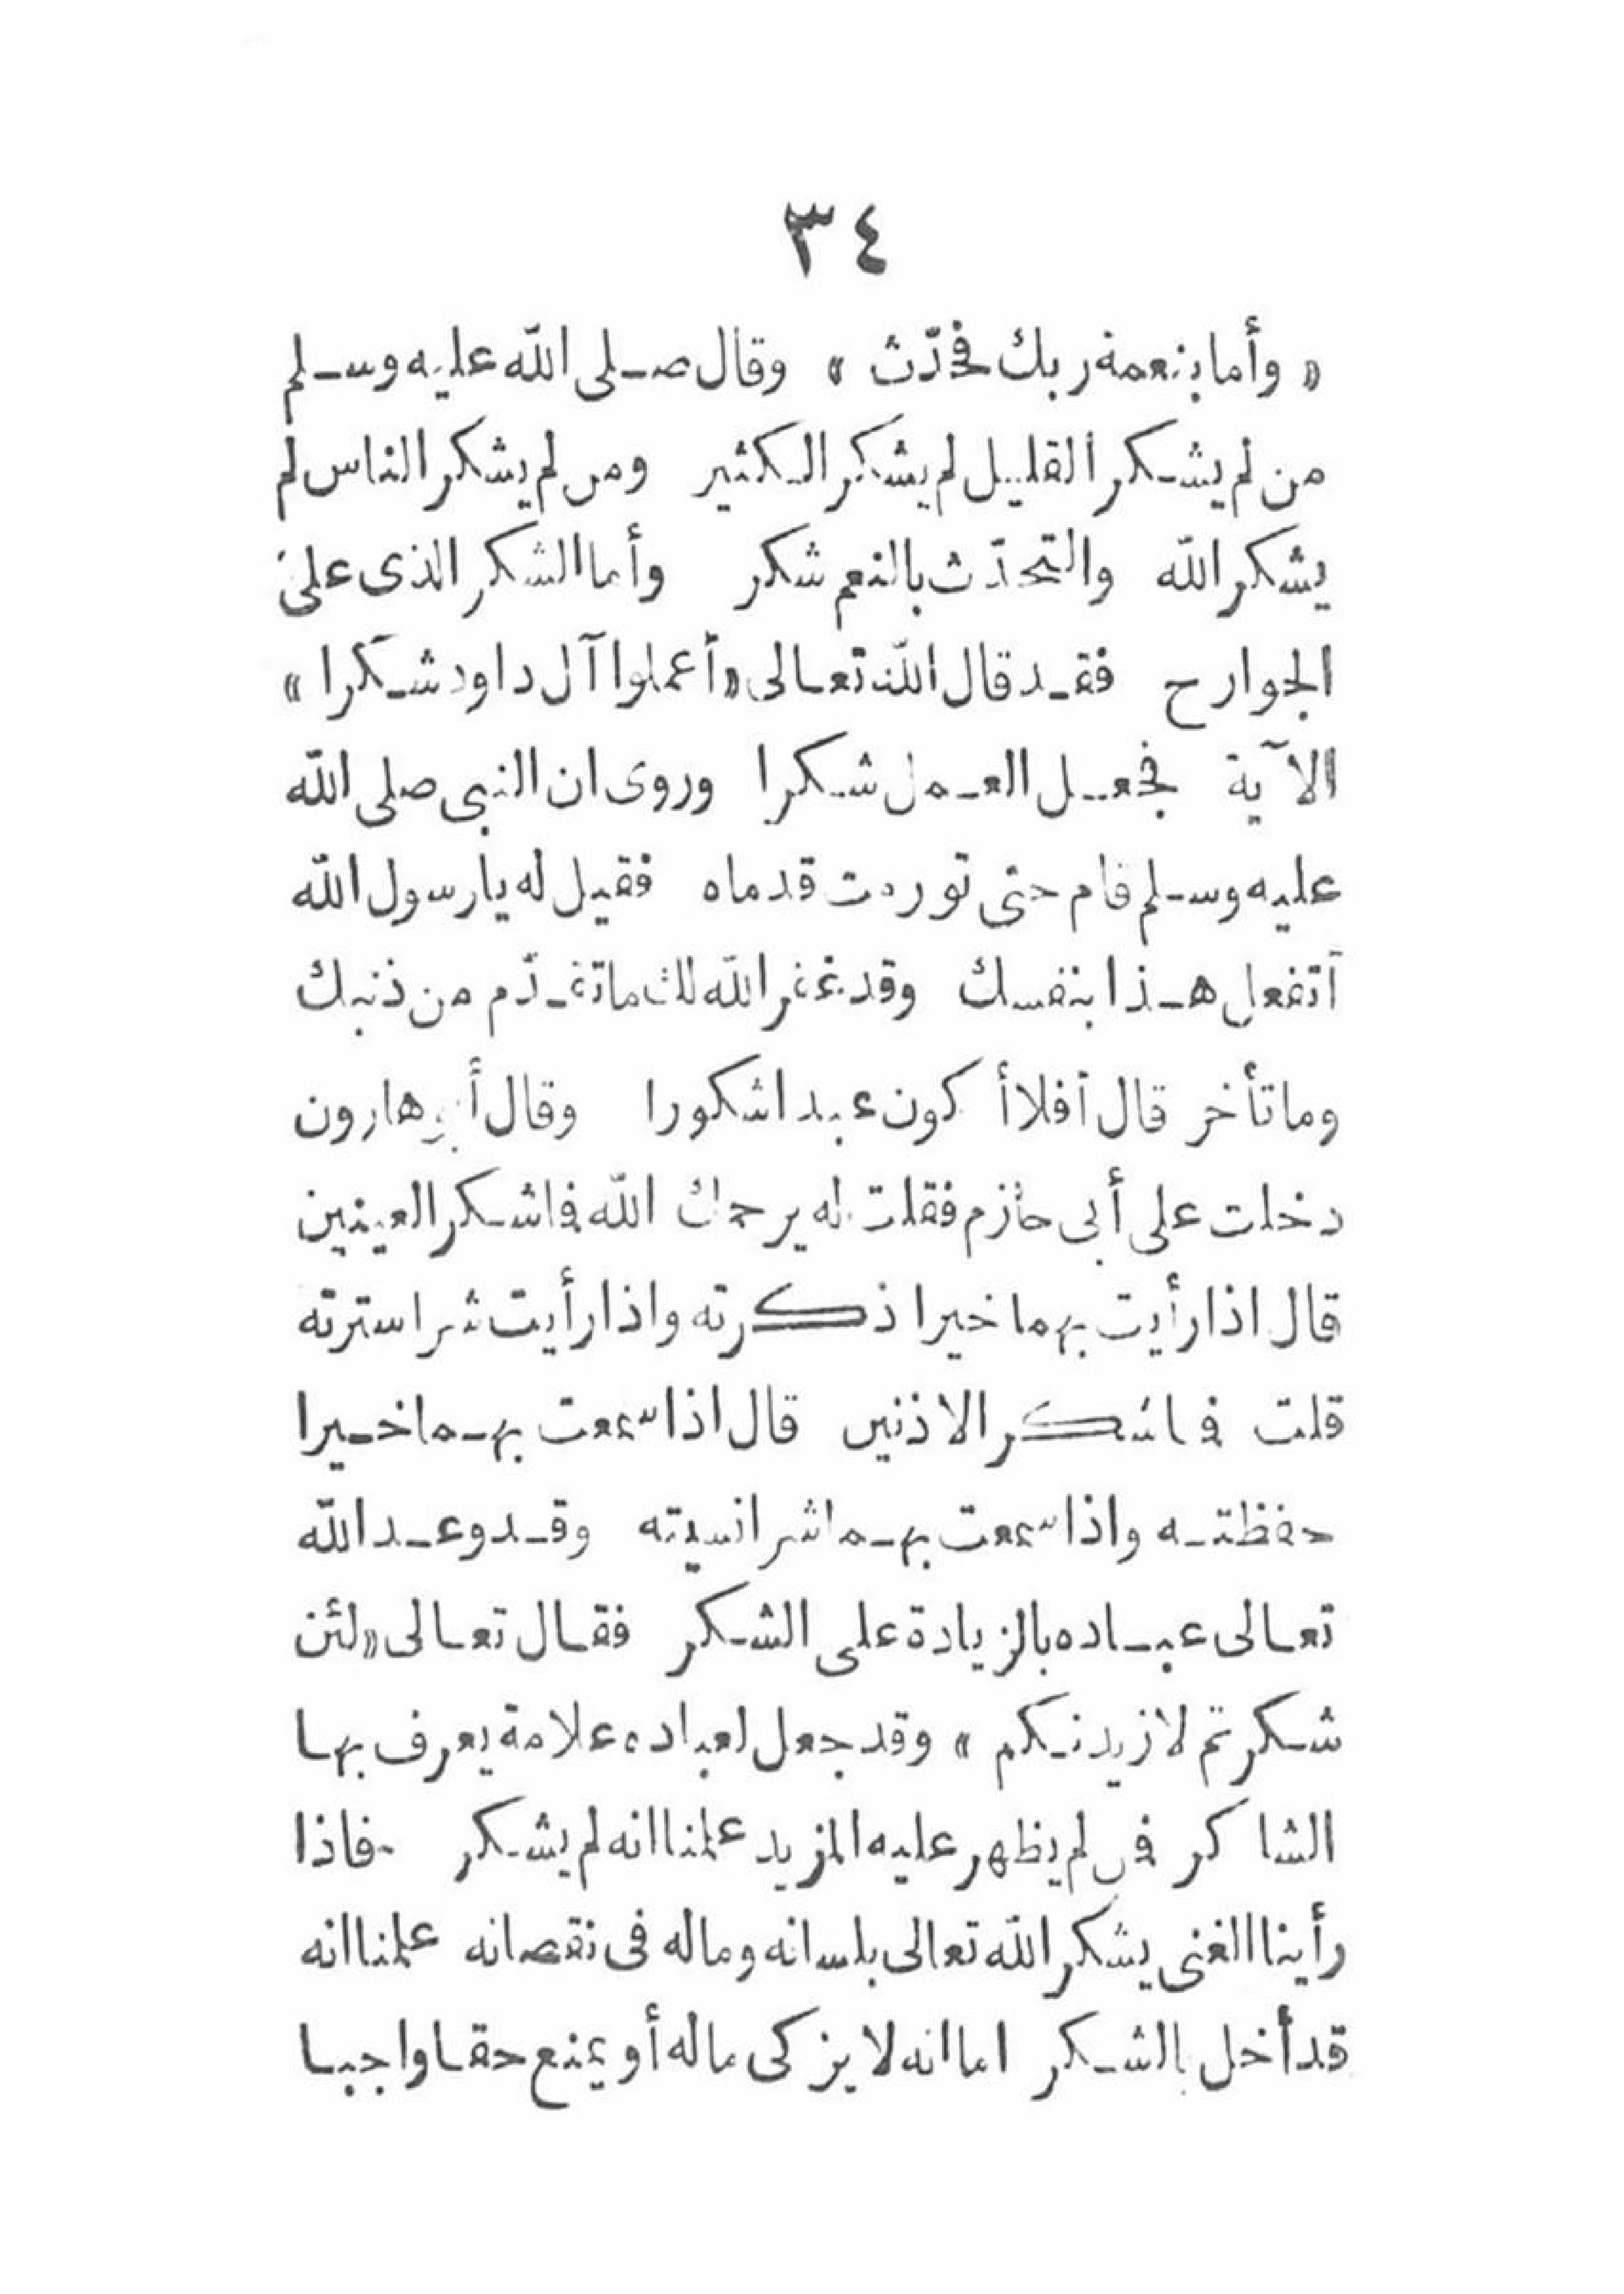 ٣٤
« وأما بنعمة ربك فحدّث » وقال صلى الله عليه وسلم
من لم يشكر القليل لم يشكر الكثير ومن لم يشكر الناس لم
يشكر الله والتحدّث بالنعم شكر وأما الشكر الذى على
الجوارح فقد قال الله تعالى « أعملوا آل داود شكرا »
الآية فجعل العمل شكرا وروى ان النبى صلى الله
عليه وسلم قام حتى تورمت قدماه فقيل له يا رسول الله
أتفعل هذا بنفسك وقد غفر الله لك ما تقدّم من ذنبك
وما تأخر قال أفلا أكون عبدا شكورا وقال أبو هارون
دخلت على أبى حازم فقلت له يرحمك الله فاشكر العينين
قال اذا رأيت بهما خيرا ذكرته واذا رأيت شرا سترته
قلت فاشكر الاذنين قال اذا سمعت بهما خيرا
حفظته واذا سمعت بهما شرا نسيته وقد وعد الله
تعالى عباده بالزيادة على الشكر فقال تعالى « لئن
شكرتم لازيدنكم » وقد جعل لعباده علامة يعرف بها
الشاكر فمن لم يظهر عليه المزيد علمنا انه لم يشكر فاذا
رأينا الغنى يشكر الله تعالى بلسانه وماله فى نقصانه علمنا انه
قد أخل بالشكر اما انه لا يزكى ماله أو يمنع حقا واجبا